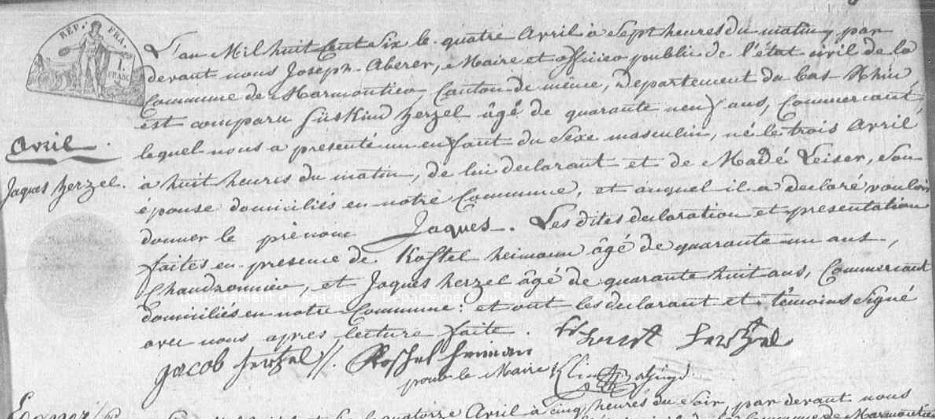 REP. FRA.
1. FRANC
L'an Mil huit Cent Six le quatre Avril à Sept heures du matin, par
devant nous Joseph Aberer, Maire et officier public de l'état civil de la
Commune de Marmoutier Canton de même, Departement du bas Rhin,
est comparu Süskind herzel âgé de quarante neuf ans, Commercant
lequel nous a presenté un enfant du Sexe masculin, né le trois Avril,
à huit heures du matin, de lui declarant et de Madé Leiser, Son
épouse domiciliés en notre Commune, et auquel il a declaré vouloir
donner le prénom Jaques. Les dites declaration et presentation
faites en presence de Kostel heimann âgé de quarante un ans,
Chaudronnier, et Jaques herzel âgé de quarante huit ans, Commercant
domiciliés en notre Commune: et ont les declarant et temoins Signé
avec nous après lecture faite.
Avril.
Jaques herzel.
Jacob hertzel
pour le Maire
Avril à cinq heures du Soir, par devant nous